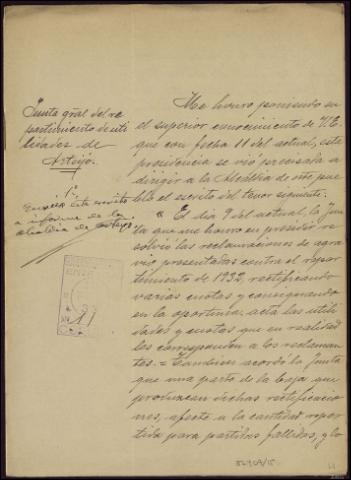 Junta gral del re
partimiento de uti
lidades de
Arteijo.
Me honro poniendo en
el superior conocimiento de V.E.
que con fecha 11 del actual, esta
presidencia se vió precisada a
dirigir a la Alcaldía de este pue-
blo el escrito del tenor siguiente:
1º
este escrito
a informe de la
alcaldía de Arteijo
" El día 9 del actual, la Jun
ta que me honro en presidir re
solvió las reclamaciones de agra
vio presentadas contra el repar
timiento de 1932, rectificando
varias cuotas y consignando
en la oportuna acta las utili
dades y cuotas que en realidad
les corresponden a los reclaman
tes. = Tambien acordó la Junta
que una parte de la baja que
produzcan dichas rectificacio
nes, afecte a la cantidad repar
tida para partidas fallidas, y lo